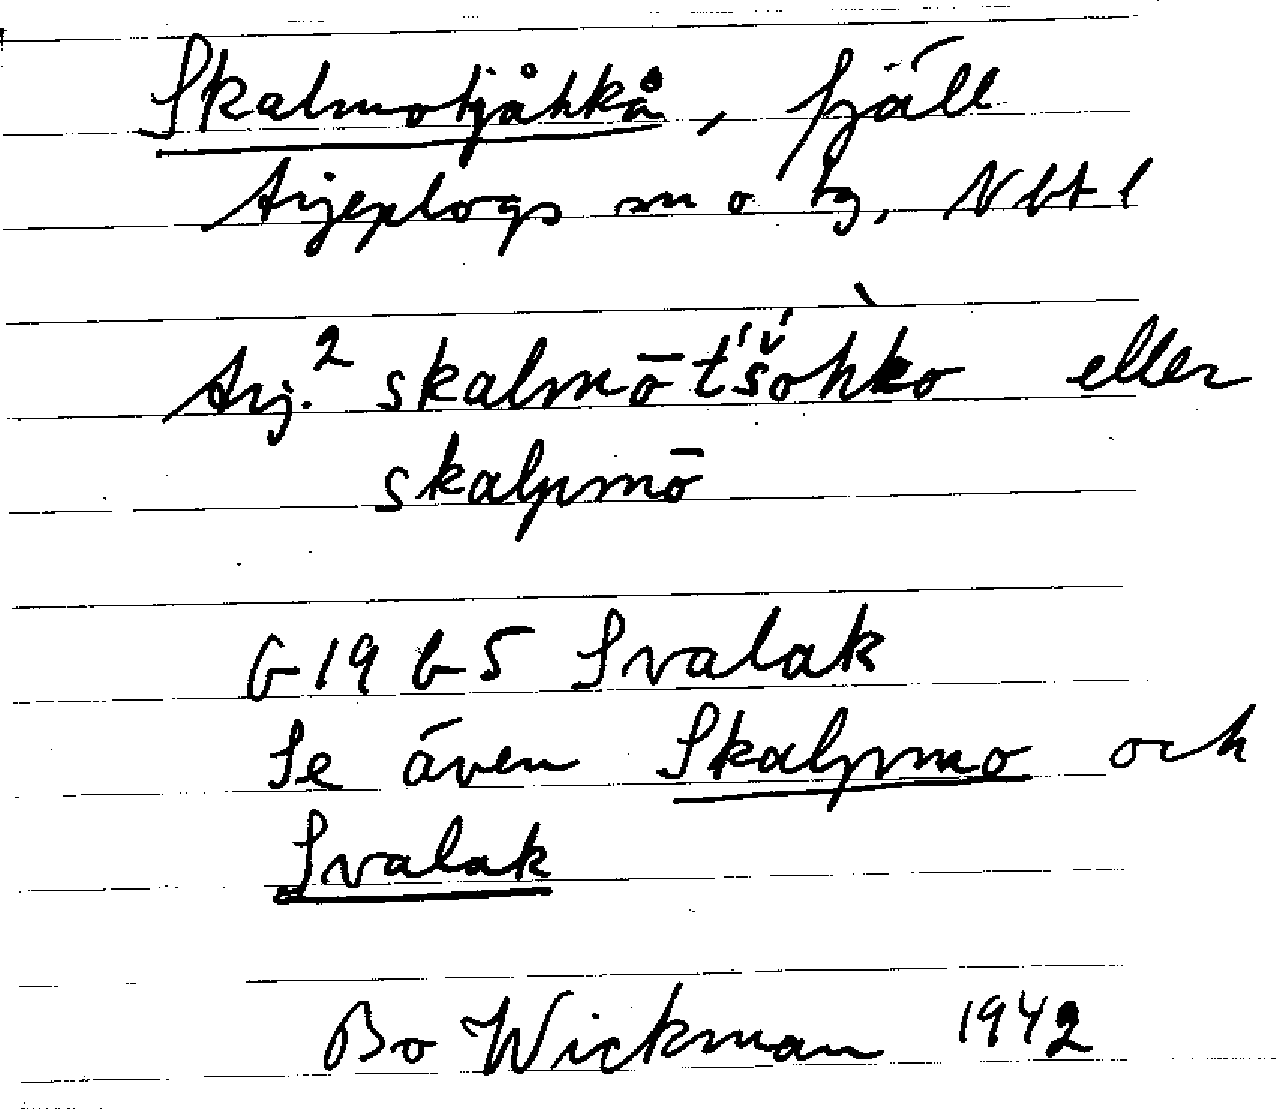 Skalmotjåhkå, fjäll
Arjeplogs sn o tg, Nbt l
Arj.² skalmōt'š́òhko eller
skalpmō
G 19 b 5 Svalak
Se även Skalpmo och
Svalak
Bo Wickman 1942